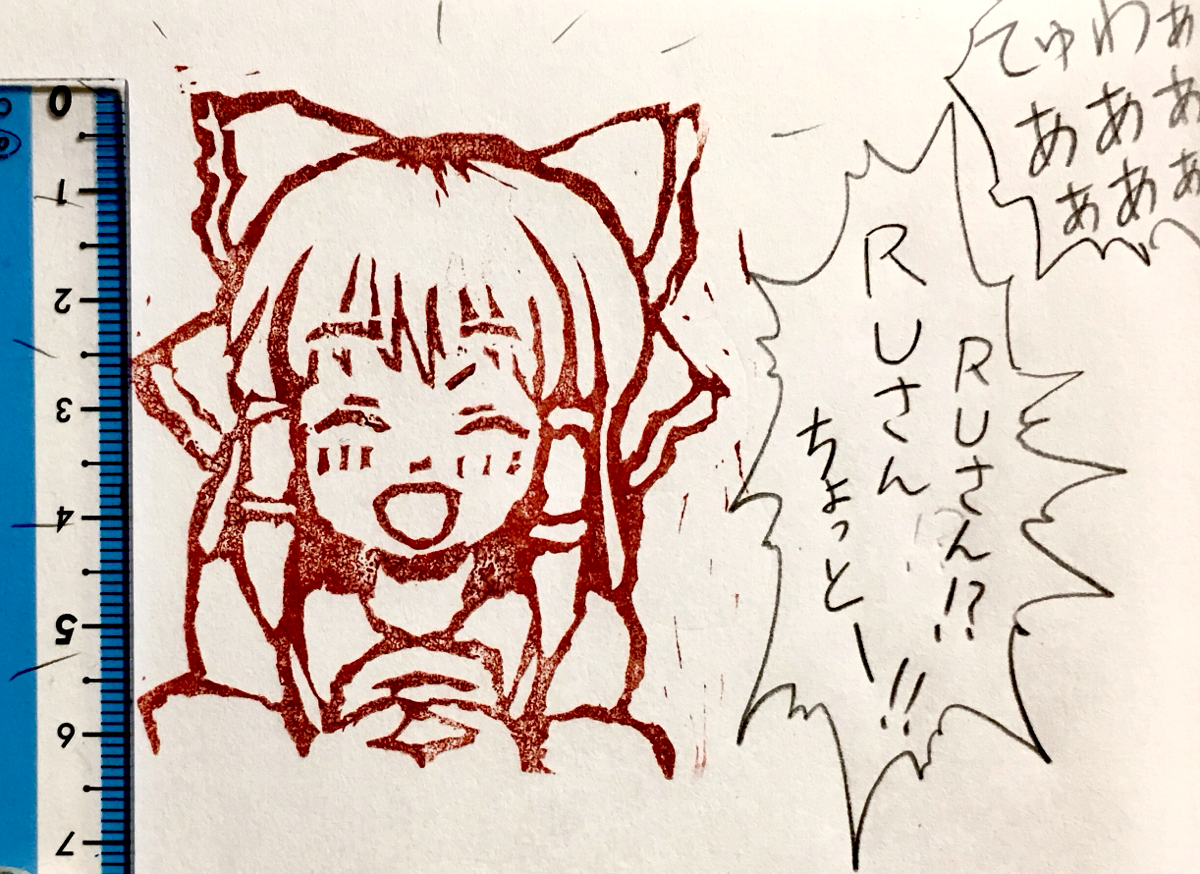 てゅわぁ
あああ
ぁぁぁ
RUさん!?
RUさん
ちょっとー!!
0
1
2
3
4
5
6
7